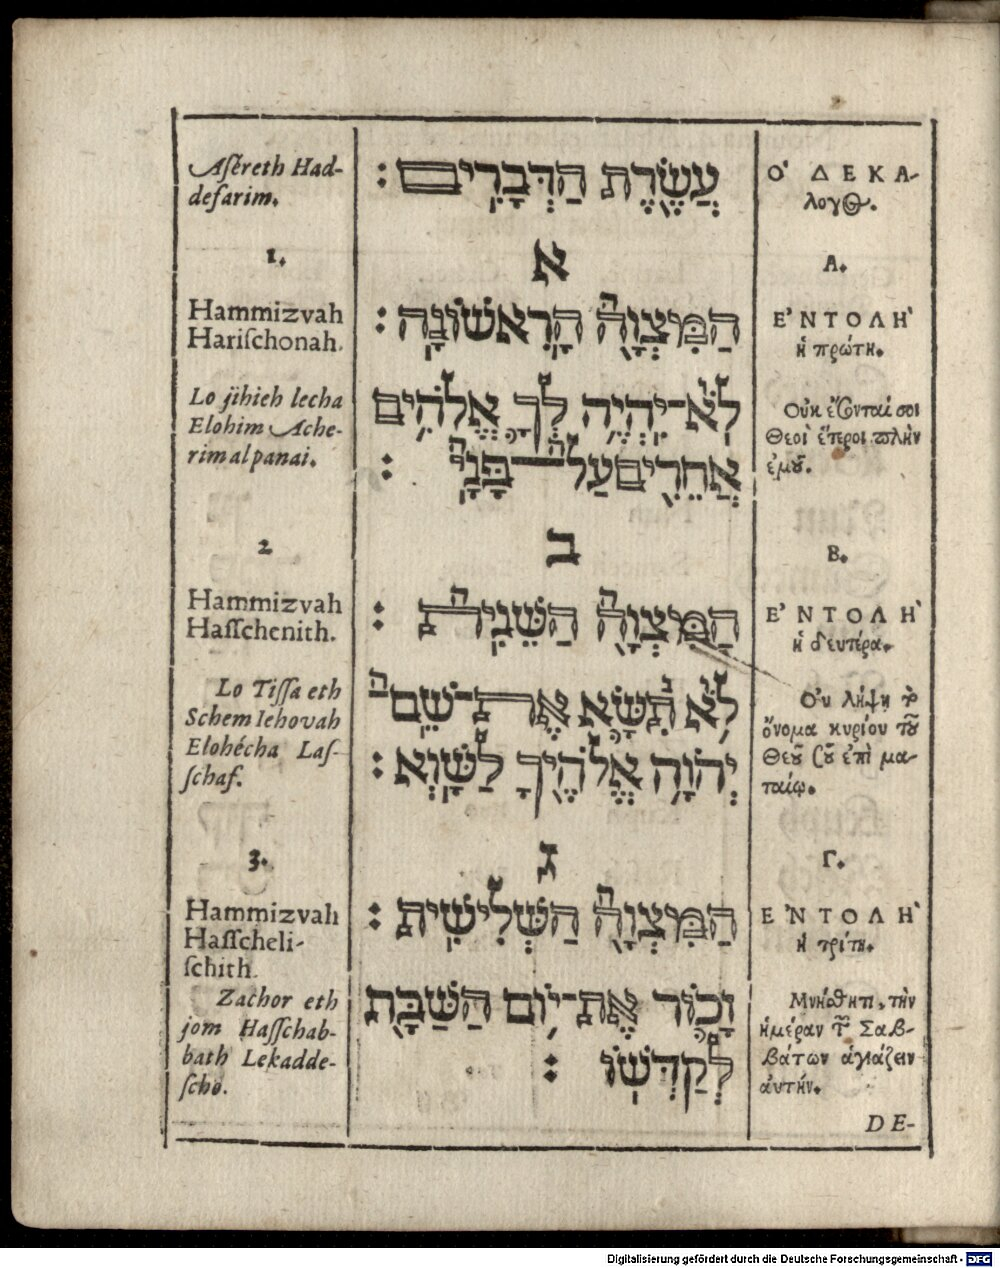 Aſéreth Had-
defarim.
עֲשֶׂרֶת הַדְּבָרִים :
Ο' ΔΕΚΑ-
λογος.
1.
א
Α.
Hammizvah
Hariſchonah.
הַמִּצְוָה הָרִאשׁוֹנָה :
Ε'ΝΤΟΛΗ'
ἡ πρώτη.
Lo jihieh lecha
Elohim Ache-
rim al panai.
לֹא־יִהְיֶה לְךָ אֱלֹהִים
אֲחֵרִים עַל־פָּנָי :
Οὐκ ἔσονταί σοι
Θεοὶ ἕτεροι πλὴν
ἐμοῦ.
2
ב
Β.
Hammizvah
Haſſchenith.
הַמִּצְוָה הַשֵּׁנִית :
Ε'ΝΤΟΛΗ'
ἡ δευτέρα.
Lo Tiſſa eth
Schem Iehovah
Elohécha Laſ-
ſchaf.
לֹא תִשָּׂא אֶת־שֵׁם
יְהֹוָה אֱלֹהֶיךָ לַשָּׁוְא :
Οὐ λήψῃ τὸ
ὄνομα κυρίου τοῦ
Θεοῦ σοῦ ἐπὶ μα-
ταίῳ.
3.
ג
Γ.
Hammizvah
Haſſcheli-
ſchith.
הַמִּצְוָה הַשְּׁלִישִׁית :
Ε'ΝΤΟΛΗ'
ἡ τρίτη.
Zachor eth
jom Haſſchab-
bath Lekadde-
ſcho.
זָכוֹר אֶת־יוֹם הַשַּׁבָּת
לְקַדְּשׁוֹ :
Μνήσθητι, τὴν
ἡμέραν τῶν Σαβ-
βάτων ἁγιάζειν
αὐτήν.
DE-
Digitalisierung gefördert durch die Deutsche Forschungsgemeinschaft - DFG